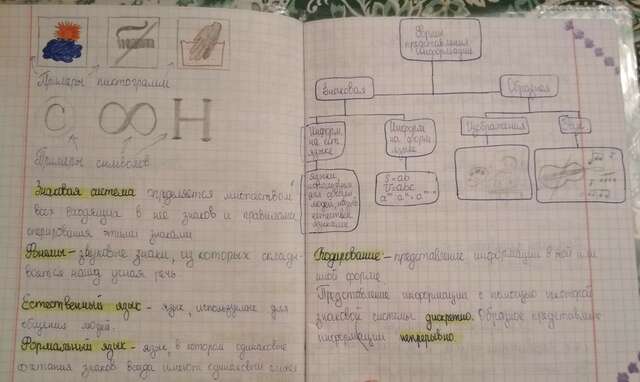 Примеры пиктограмм
C ∞ H
Примеры символов
Знаковая система определяется множеством
всех входящих в нее знаков и правилами
оперирования этими знаками
Фонемы - звуковые знаки, из которых склады-
вается наша устная речь.
Естественный язык - язык, используемые для
общения людей.
Формальный язык - язык, в котором одинаковые
сочетания знаков всегда имеют одинаковый смысл
Формы
представления
информации
Знаковая
Образная
Информ
на ест.
языке
Информ
на форм
языке
Изображения
Звук
для общения
людей
S=ab
V=abc
Кодирование - представление информации в той или
иной форме.
Представление информации с помощью некоторой
знаковой системы дискретно. Образное представление
информации непрерывно.